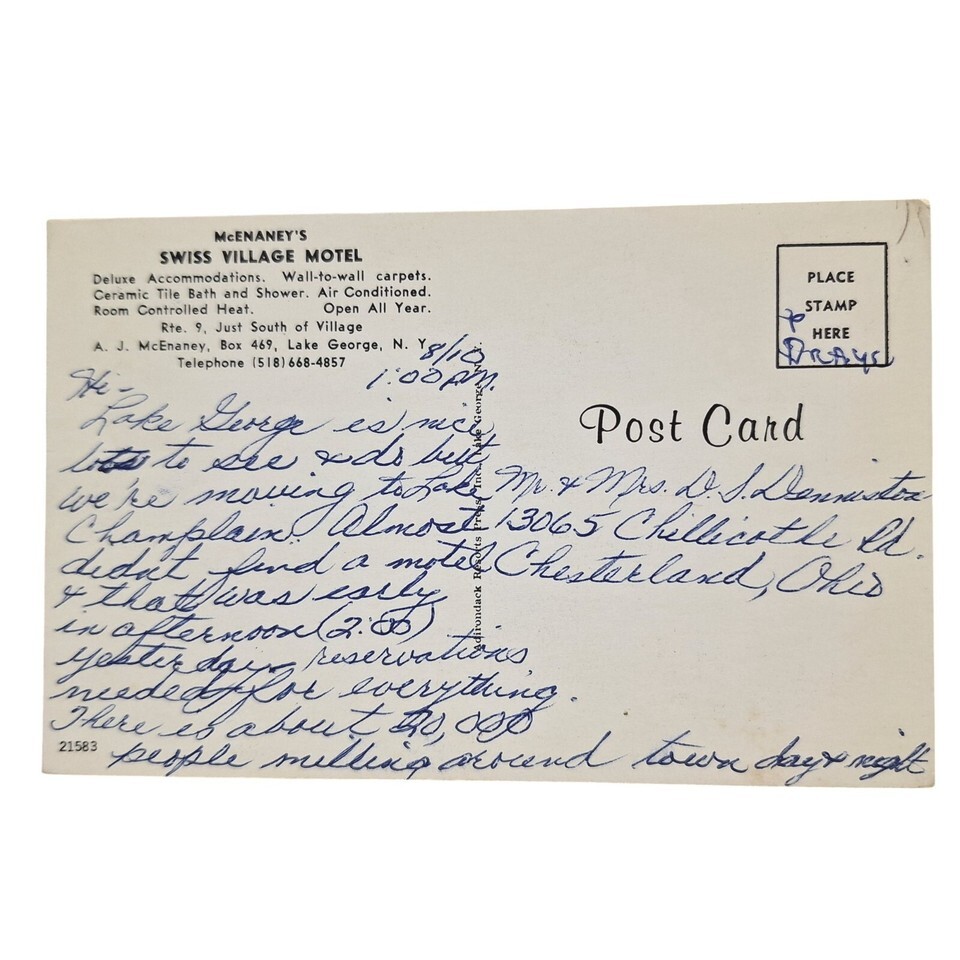 McENANEY'S
SWISS VILLAGE MOTEL
Deluxe Accommodations. Wall-to-wall carpets.
Ceramic Tile Bath and Shower. Air Conditioned.
Room Controlled Heat. Open All Year.
Rte. 9, Just South of Village
A. J. McEnaney, Box 469, Lake George, N. Y.
Telephone (518) 668-4857
8/10
1:00 P.M.
Hi-
Lake George is nice
lots to see & do but
we're moving to Lake
Champlain. Almost
didn't find a motel
& that was early
in afternoon (2:00)
yesterday - reservations
needed for everything.
There is about 20,000
people milling around town day & night
21583
Adirondack Resorts Press, Inc., Lake George, N.Y.
PLACE
STAMP
HERE
Post Card
Mr. & Mrs. D. S. Denniston
13065 Chillicothe Rd.
Chesterland, Ohio